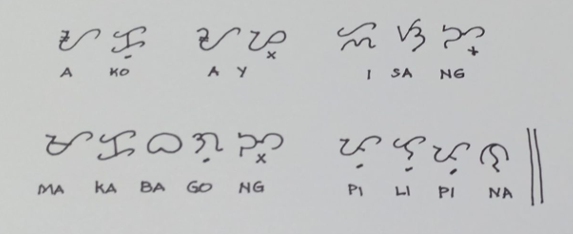 ᜀᜃᜓ ᜀᜌ᜔ ᜁᜐᜅ᜔
A KO A Y I SA NG
ᜋᜃᜊᜄᜓᜅ᜔ ᜉᜓᜎᜓᜉᜓᜈ᜶
MA KA BA GO NG PI LI PI NA